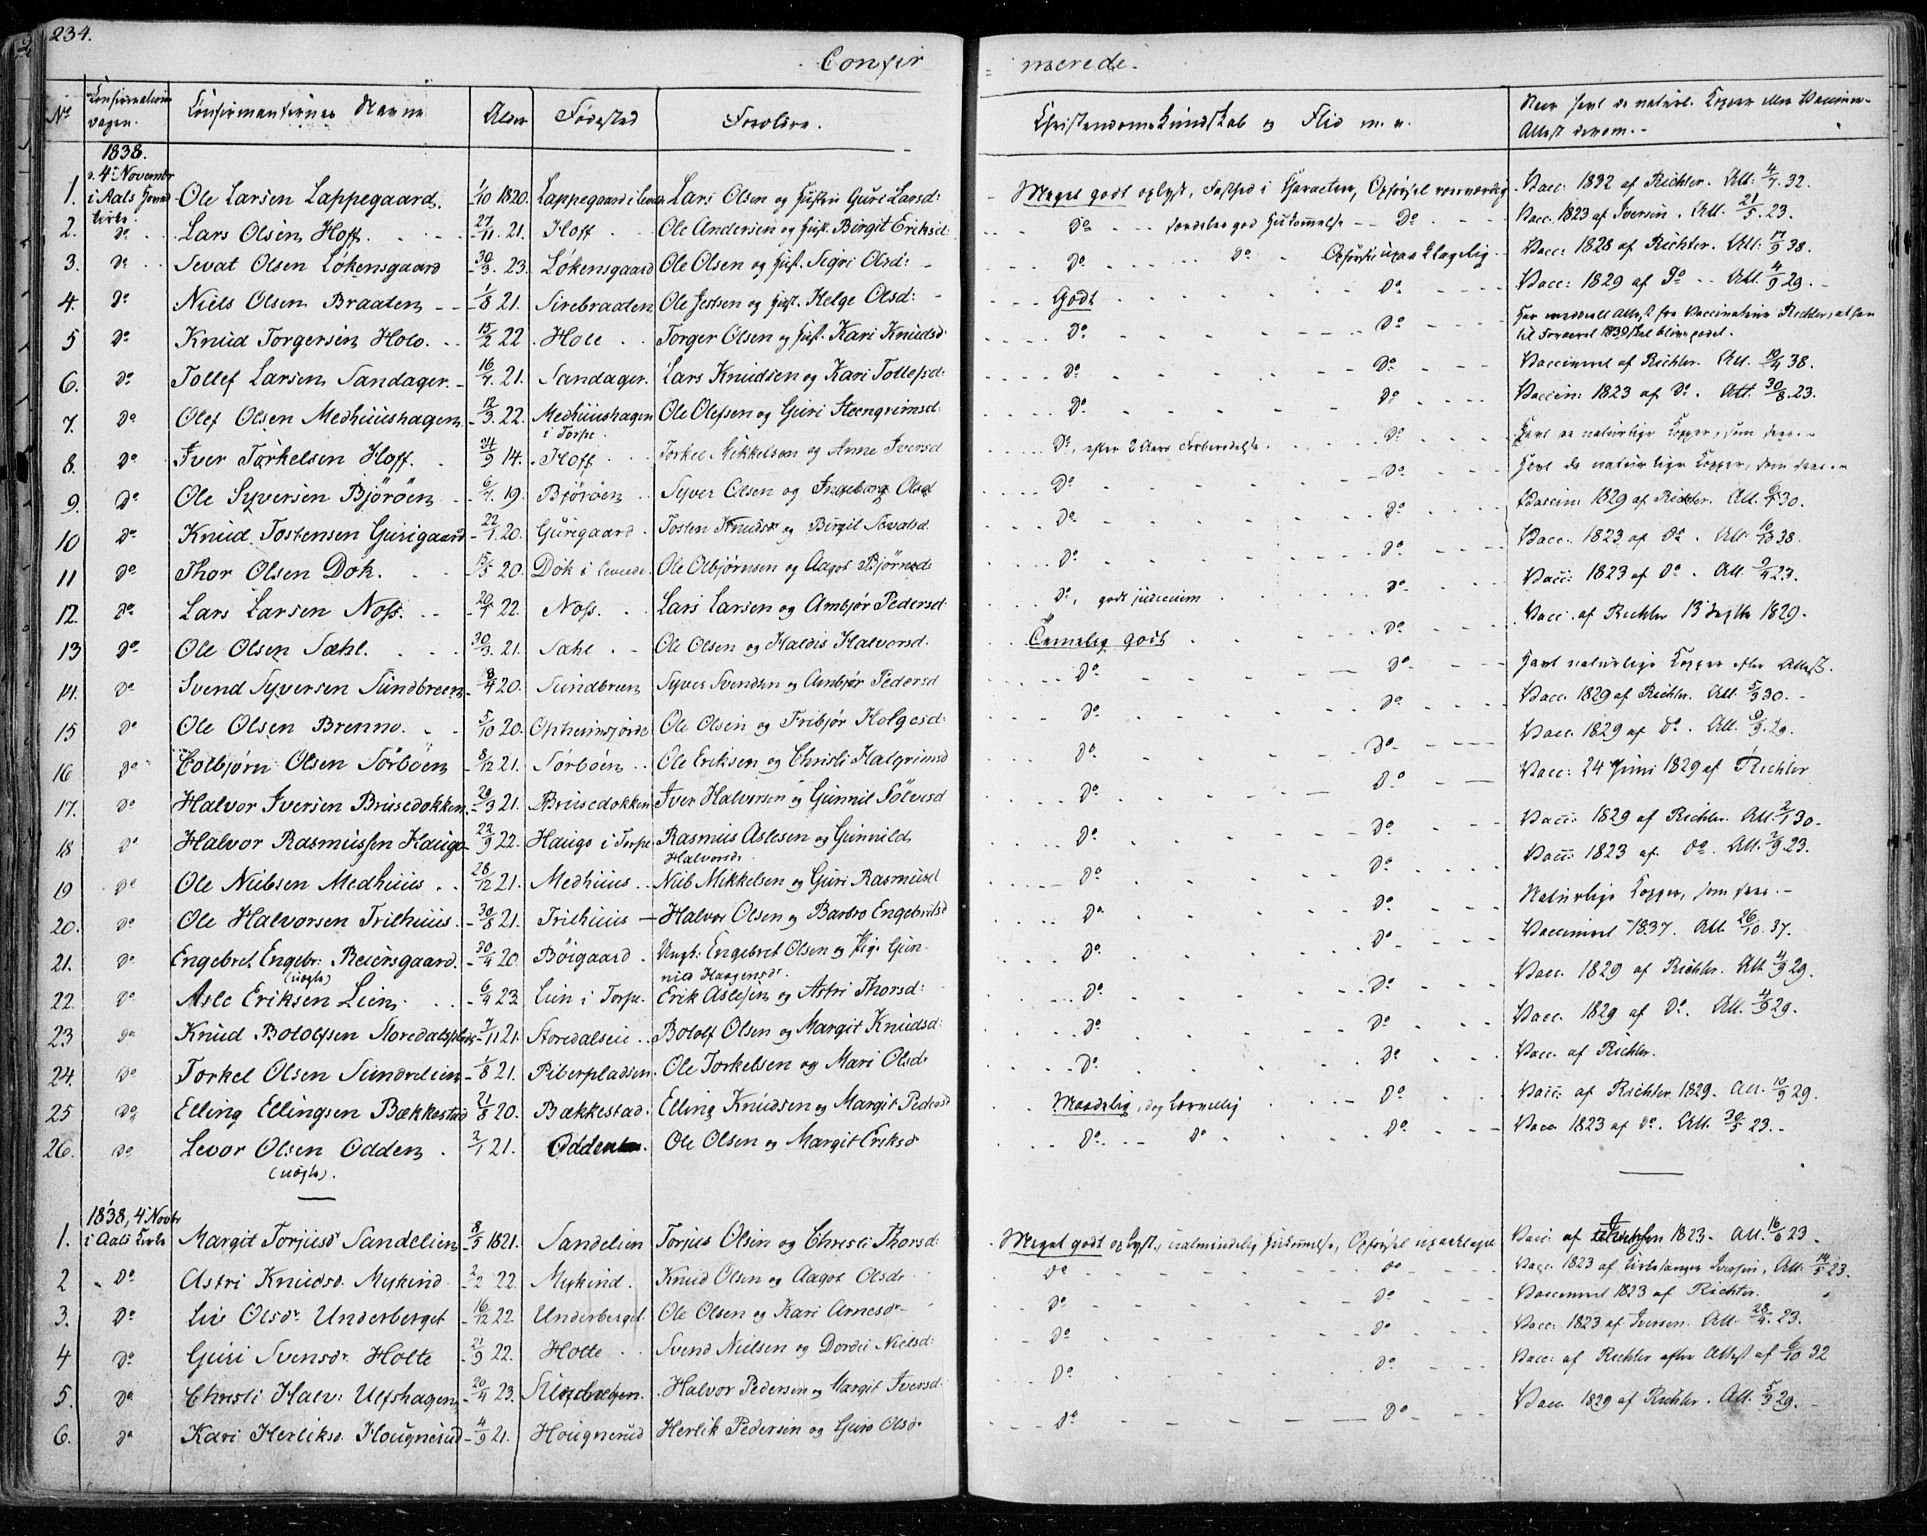 234.
Confir- merede.
No | Confirmations dagen. | Confirmanternes Navne | Alder | Fødested | Forældre. | Christendoms Kundskab og Flid m. v. | Naar havt de naturl. Kopper eller Vaccine-Attest derom.
1838.
d. 4de Novembr i Aals Hoved Kirke.
1. Ole Larsen Lappegaard. 1/10 1820. Lappegaard i Leveld Lars Olsen og Hustru Guri Larsd: Meget godt oplyst, Fasthed i Characteer, Opførsel roesværdig Vacc: 1832 af Richter. Att: 4/7 32.
2. Do Lars Olsen Hoff. 27/11 21. Hoff Ole Andersen og Hust. Birgit Eriksd: Do særdeles god Hukommelse Do Vacc. 1823 af Iversen. Att. 21/5 23.
3. Do Sevat Olsen Løkensgaard 30/3 23. Løkensgaard Ole Olsen og Hust. Sigri Olsd: Do Do Opførsel upaaklagelig. Vacc: 1828 af Richter. Att: 17/9 38.
4. Do Niels Olsen Braaten 1/8 21. Sirebraaten Ole Jensen og Hust. Helge Olsd: Godt Do Vacc: 1829 af Do Att. 4/9 29.
5 Do Knud Torgersen Hole. 15/2 22 Hole Torger Olsen og Hust. Kari Knudsd Do Do Har medbragt Attest fra Vaccinateur Richter, at han
til Foraaret 1839 skal blive podet.
6. Do Tollef Larsen Sandager. 16/7 21. Sandager. Lars Knudsen og Kari Tollefsd: Do Do Vaccineret af Richter. Att. 10/4 38.
7. Do Olef Olsen Medhuushagen 12/3 22. Medhuushagen i Torpe Ole Olefsen og Guri Steengrimsd: Do Do Vaccin: 1823 af Do. Att. 30/8 23.
8. Do Iver Torkelsen Hoff. 24/9 14. Hoff Torkel Mikkelsen og Anne Iversd Do, efter 2 Aars Forberedelse. Do Havt de naturlige Kopper, som sees.
9. Do Ole Syversen Björöen 6/7 19. Björöen Syver Olsen og Ingeborg Olsd Do Do Havt de naturlige Kopper, som sees.
10 Do Knud Tostensen Gurigaard 22/1 20. Gurigaard. Tosten Knuds. og Birgit Sevatsd. Do Do Vaccin. 1829 af Richter. Att. 30.
11 Do Thor Olsen Dok. 15/5 20. Dok i Leveld. Ole Olbjørnsen og Aagot Bjørnsd: Do Do Vacc: 1823 af Do. Att. 10/10 38.
12. Do Lars Larsen Noss. 20/7 22. Noss. Lars Larsen og Ambjør Pedersd: Do, godt judicium Do Vacc: 1823 af Do. Att. 23.
13 Do Ole Olsen Sæhl. 30/3 21. Sæhl Ole Olsen og Haldis Halvorsd. Temmelig godt Do Vacc. af Richter 13 Septbr 1829.
14. Do Svend Syversen Sundbreen 4 20. Sundbreen Syver Svendsen og Ambjør Pedersd Do Do Havt naturlige Kopper efter Attest.
15 Do Ole Olsen Brenno. 5/10 20. Opheimsjorde Ole Olsen og Tribjør Helgesd: Do Do Vacc. 1829 af Richter. Att. 5/3 30.
16 Do Tolbjørn Olsen Sørbøen 8/12 21. Sørbøen Ole Eriksen og Christi Halgrimsd Do Do Vacc. 1829 af Do. Att. 29.
17. Do Halvor Iversen Brusedokken 20/3 21. Brusedokken Iver Halvorsen og Gunnil Sølvesd Do Do Vacc: 24 Juni 1829 af Richter
18 Do Halvor Rasmussen Haugo 22/9 22. Haugo i Torpe Rasmus Aslesen og Gunnild Halvorsdr Do Do Vacc: 1829 af Richter. Att. 30.
19 Do Ole Nielsen Medhuus. 28/12 21. Medhuus. Niels Mikkelsen og Guri Rasmusd Do Do Vacc: 1823 af Do. Att. 23.
20. Do Ole Halvorsen Trilhuus. 30/8 21. Trilhuus Halvor Olsen og Barbro Engebretsd Do Do Naturlige Kopper, som sees.
21. Do Engebret Engebr: Reiersgaard. (uægte) 30/4 20. Böigaard Ungk: Engebret Olsen og Pige Gunnild Haagensdr. Do Do Vaccineret 1837. Att. 26/10 37.
22. Do Asle Eriksen Lien 6/4 23 Lien i Torpe. Erik Aslesen og Astri Thorsd: Do Do Vacc. 1829 af Richter. Att. 4/9 29.
23 Do Knud Botolfsen Storedalseie 7/11 21. Storedalseie Botolf Olsen og Margit Knudsd: Do Do Vacc. 1829 af Do. Att. 4/9 29.
24. Do Torkel Olsen Sundrelien 1/8 21. Piberpladsen. Ole Torkelsen og Mari Olsd Do Do Vacc. af Richter.
25 Do Elling Ellingsen Bækkestad 21/8 20. Bækkestad: Elling Knudsen og Margit Pedersd Maadelig, dog lærvillig Do Vacc: af Richter 1829. Att. 10/9 29.
26. Do Levor Olsen Odden. (uægte). 2/1 21. Odden. Ole Olsen og Margit Eriksdr Do Do Do Vacc. 1823 af Do. Att. 30/5 23.
1838, 4 Novbr
i Aals Kirke
1. Margit Torjusdr Sandelien 8/5 1821. Sandelien Torjus Olsen og Christi Thorsd: Meget godt oplyst, ualmindelig Hukommelse, Opførsel upaaklagel Vacc: af Iversen 1823. Att. 16/6 23.
2 Do Astri Knudsd. Mykind. 2/2 22. Mykind. Knud Olsen og Aagot Olsdr Do Do Vacc: 1823 af Kirkesanger Iversen. Att. 14/5 23.
3. Do Liv Olsdr Underberget 16/12 22. Underberget. Ole Olsen og Kari Arnesdr Do Do Vaccineret 1823 af Richter.
4 Do Guri Svensdr Holte 21/9 22. Holte Svend Nielsen og Dordei Nielsd: Do Do Vacc: 1823 af Iversen. Att. 28/4 23.
5. Do Christi Halv: Ulfshagen 20/4 23. Ulfshagen. Halvor Pedersen og Margit Iversd: Do Do Vacc: af Richter efter Attest af 6/10 32
6. Do Kari Herliksd. Hougnerud 4/9 21. Hougnerud Herlik Pedersen og Guro Olsdr Do Do Vacc. 1829 af Richter. Att. 5/9 29.